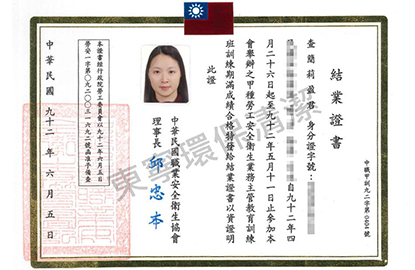 結業證書
中職甲訓九二字第0464號
查簡莉盈君身分證字號：
自九十二年四
月二十六日起至九十二年五月十一日止參加本
會舉辦之甲種勞工安全衛生業務主管教育訓練
班訓練期滿成績合格特發給結業證書以資證明
此證
中華民國職業安全衛生協會
理事長 邱忠本
本證書經行政院勞工委員會以九十二年六月五日
勞安一字第〇九二〇〇三一六九二號函准予備查
中華民國九十二年六月五日
東寧環保清潔